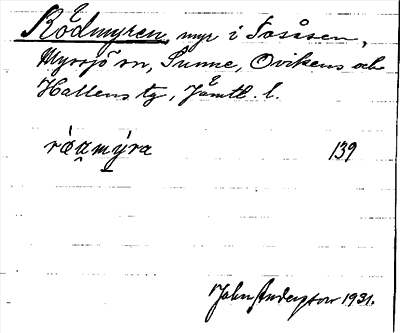 Rödmyren, myr i Tosåsen,
Myssjö sn, Sunne, Ovikens och
Hallens tg, Jämtl. l.
rǿn̥mýra 139
John Anderson 1931.